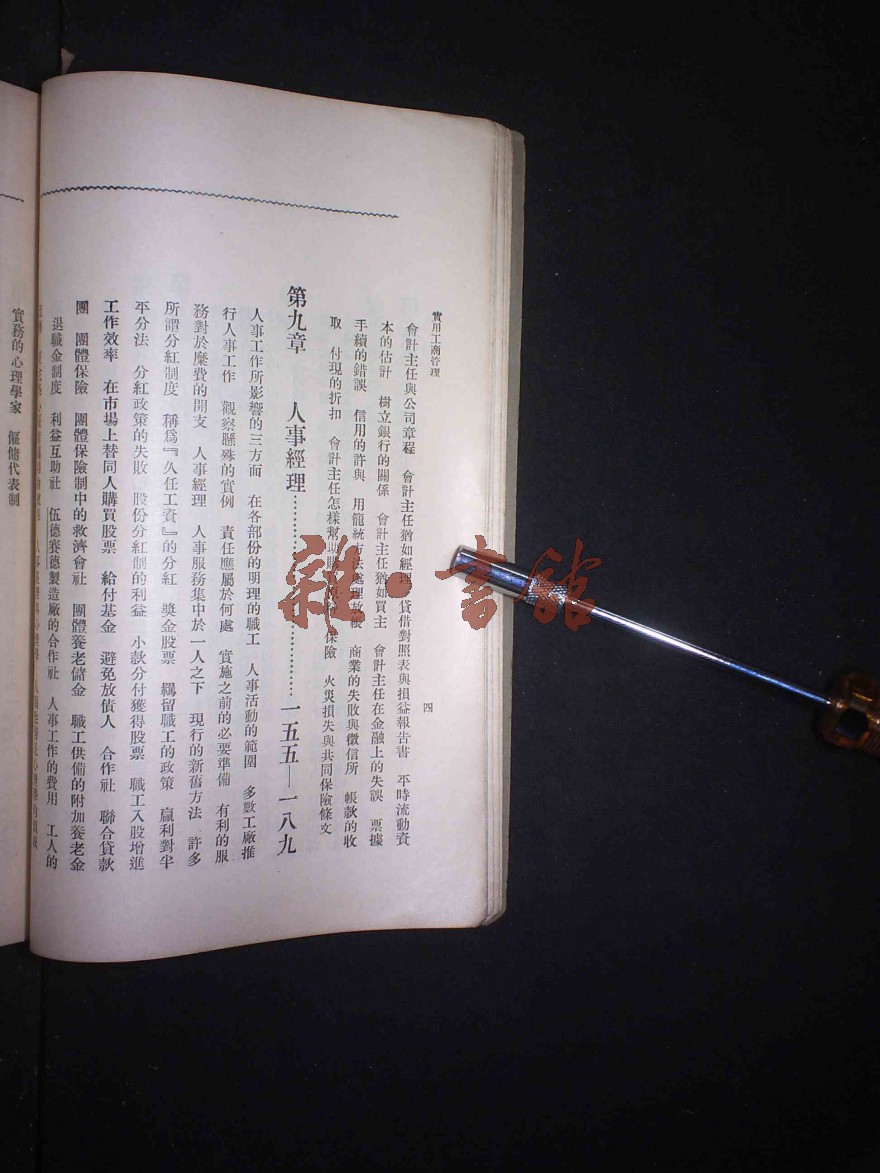 實用工商管理
四
會計主任與公司章程 會計主任猶如經理 貸借對照表與損益報告書 平時流動資
本的估計 樹立銀行的關係 會計主任猶如買主 會計主任在金融上的失誤 票據
手續的錯誤 信用的許與 用籠統方法處理放帳 商業的失敗與徵信所 帳款的收
取 付現的折扣 會計主任怎樣幫 保險 火災損失與共同保險條文
第九章 人事經理……一五五—一八九
人事工作所影響的三方面 在各部份的明理的職工 人事活動的範圍 多數工廠推
行人事工作 觀察懸殊的實例 責任應屬於何處 實施之前的必要準備 有利的服
務對於糜費的開支 人事經理 人事服務集中於一人之下 現行的新舊方法 許多
所謂分紅制度 稱爲『久任工資』的分紅 獎金股票 羈留職工的政策 贏利對半
平分法 分紅政策的失敗 股份分紅制的利益 小款分付獲得股票 職工入股增進
工作效率 在市場上替同人購買股票 給付基金 避免放債人 合作社 聯合貸款
團 團體保險 團體保險制中的救濟會社 團體養老儲金 職工供備的附加養老金
退職金制度 利益互助社 伍德賽德製造廠的合作社 人事工作的費用 工人的
實務的心理學家 僱傭代表制
雜·書館